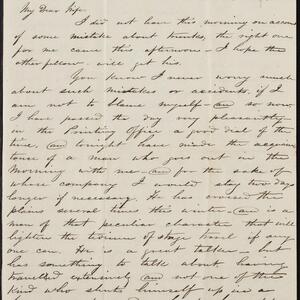 My Dear Wife
I did not leave this morning on account
of some mistake about trunks, the right one
for me came this afternoon - I hope the
other fellow will get his.
You know I never worry much
about such mistakes or accidents, if I
am not to blame myself - and so now
I have passed the day very pleasantly
in the Printing Office a good deal of the
time, and tonight have made the acquain
tance of a man who goes out in the
Morning with me - and for the sake of
whose company I would stay two days
longer if necessary. He has crossed the
plains several times this winter, and is a
man of that peculiar character that will
lighten the tedium of stage travel if any
one can. He is a great talker and
has something to talk about having
travelled extensively and not one of the
kind who shuts himself up in a